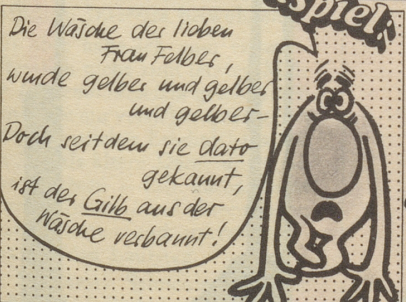 spiel,
Die Wäsche der lieben
Frau Felber,
wurde gelber und gelber
und gelber–
Doch seitdem sie dato
gekannt,
ist der Gilb aus der
Wäsche verbannt!